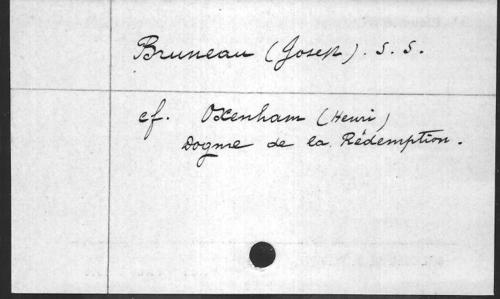 Bruneau (Joseph). S. S.
cf. Oxenham (Henri)
Dogme de la Rédemption.